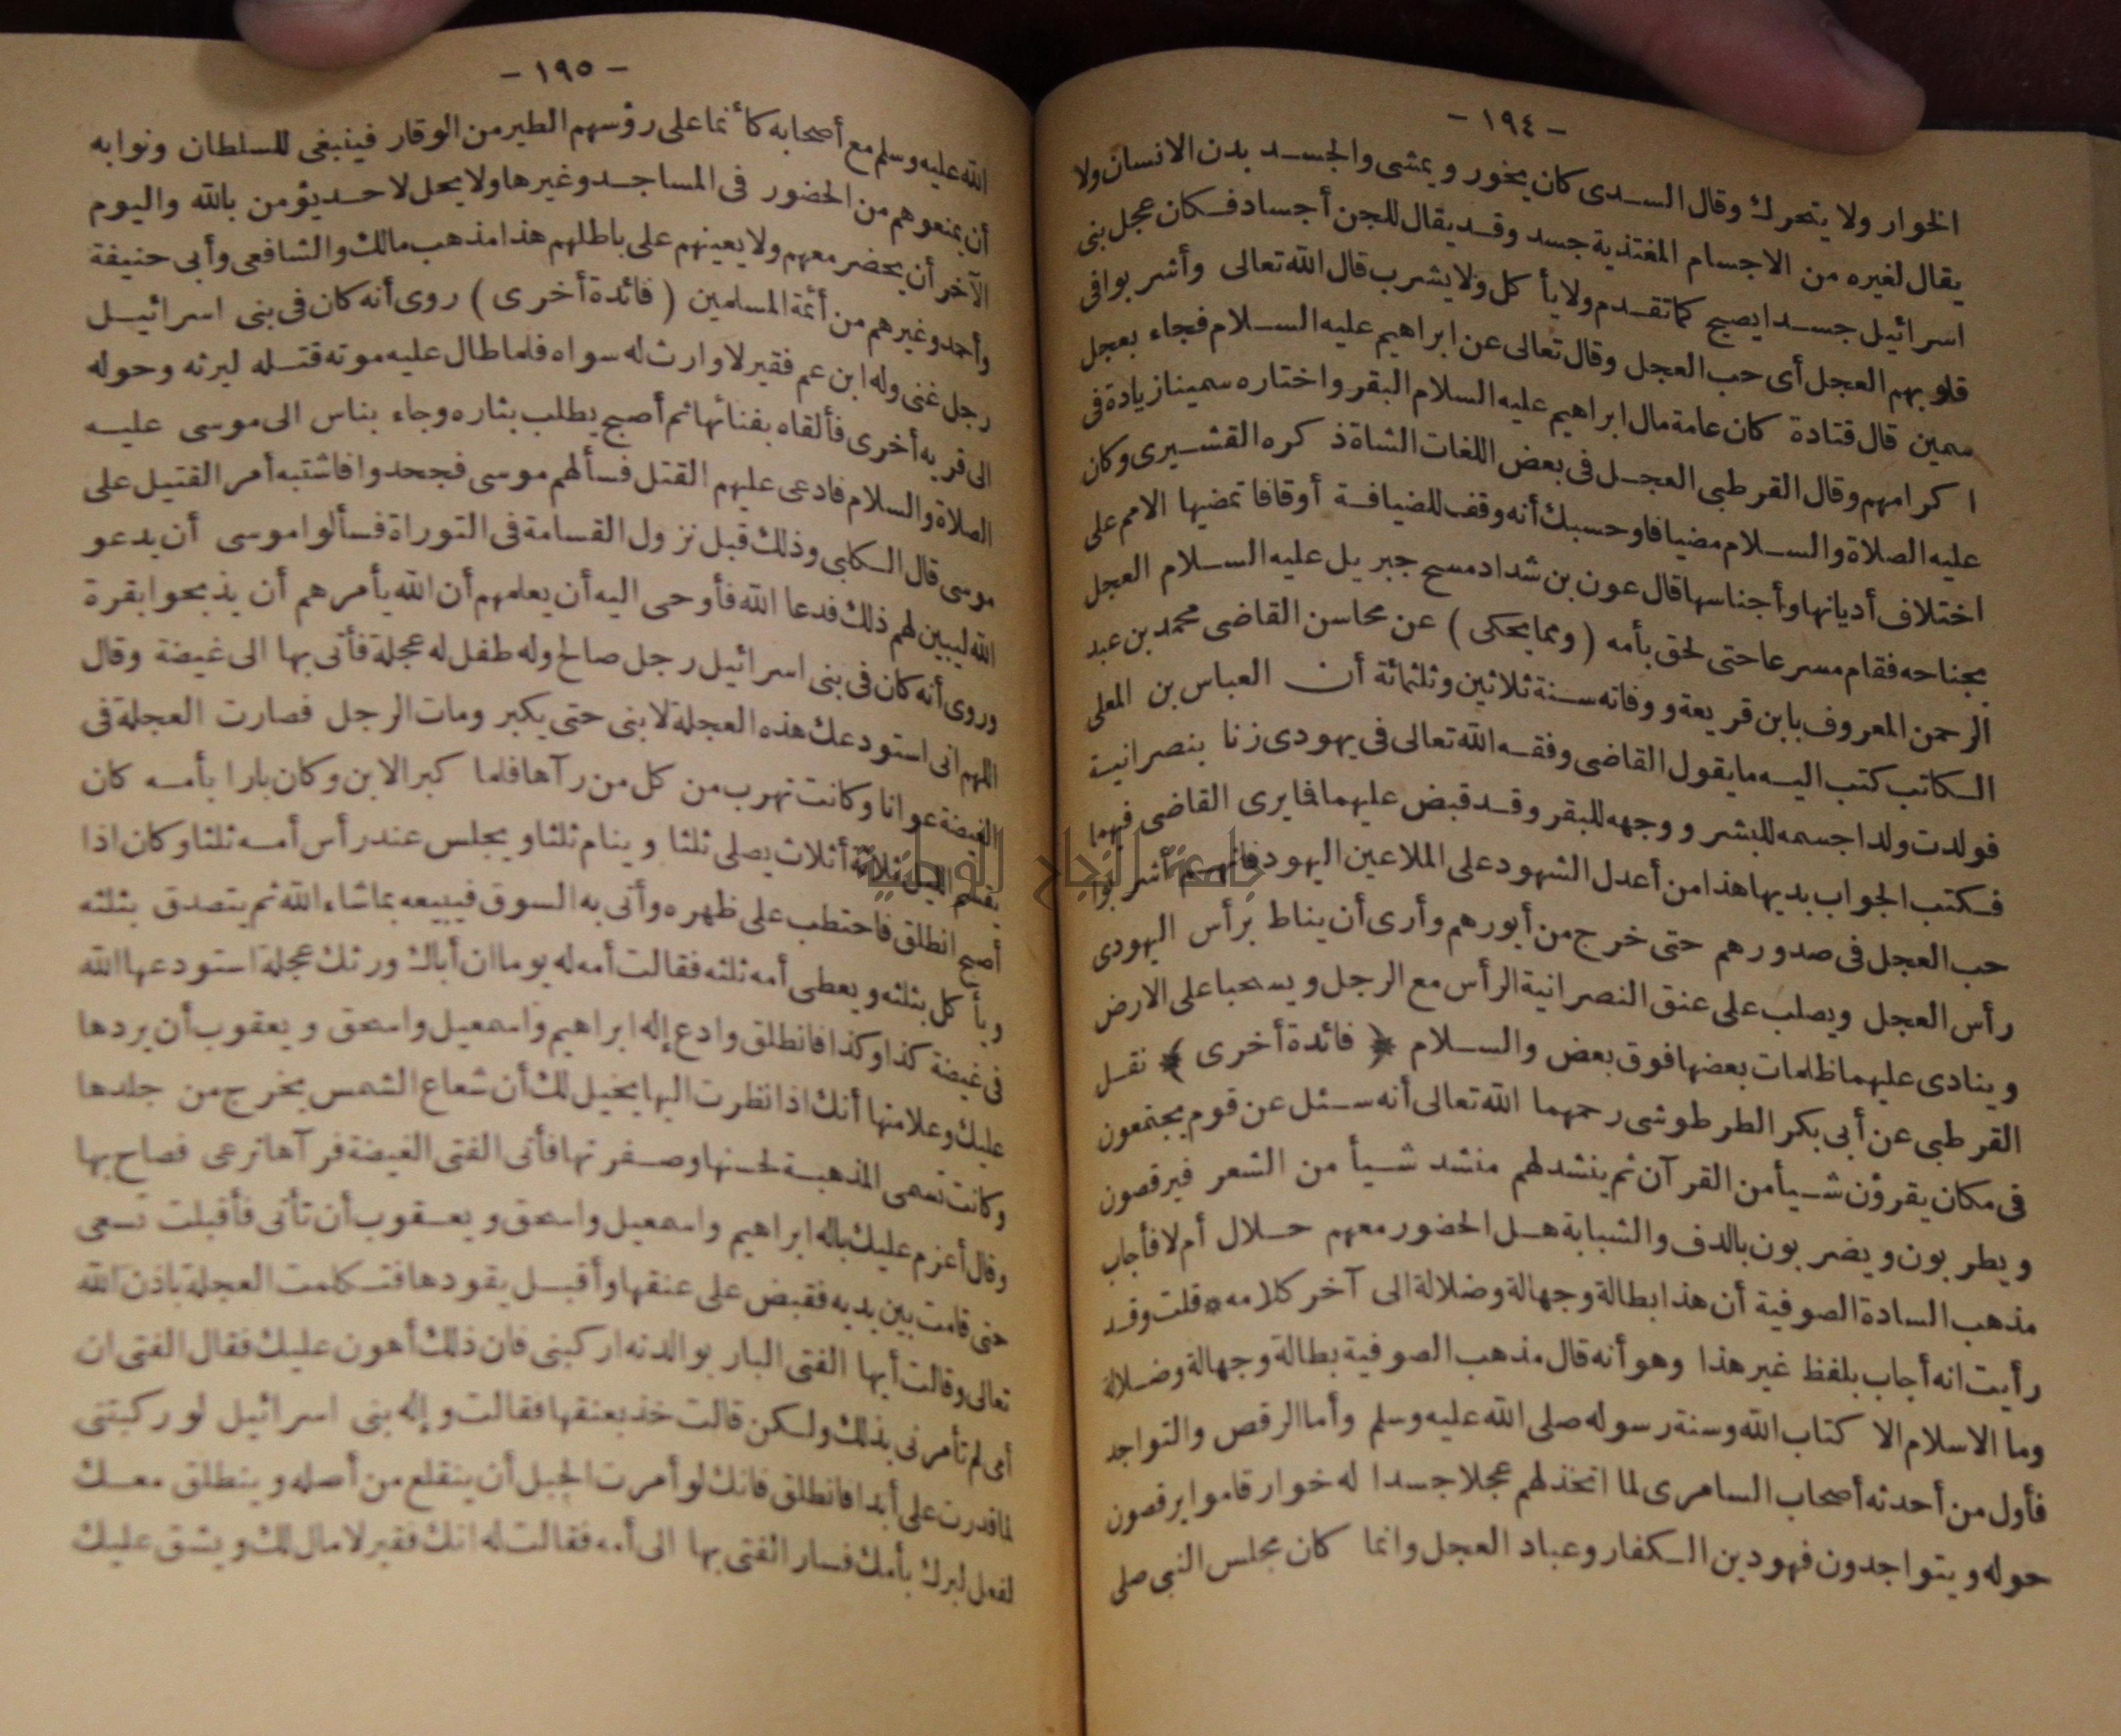 - ١٩٤ -
الخوار ولا يتحرك وقال السدى كان يخور ويمشى والجسد بدن الانسان ولا
يقال لغيره من الاجسام المغتذية جسد وقد يقال للجن أجساد فكان عجل بنى
اسرائيل جسدا يصيح كما تقدم ولا يأكل ولا يشرب قال الله تعالى وأشربوا فى
قلوبهم العجل أى حب العجل وقال تعالى عن ابراهيم عليه السلام فجاء بعجل
سمين قال قتادة كان عامة مال ابراهيم عليه السلام البقر واختاره سمينا زيادة فى
اكرامهم وقال القرطبى العجل فى بعض اللغات الشاة ذكره القشيرى وكان
عليه الصلاة والسلام مضيافا وحسبك أنه وقف للضيافة أوقافا تمضيها الامم على
اختلاف أديانها وأجناسها قال عون بن شداد مسح جبريل عليه السلام العجل
بجناحه فقام مسرعا حتى لحق بأمه (ومما يحكى) عن محاسن القاضى محمد بن عبد
الرحمن المعروف بابن قريعة ووفاته سنة ثلاثين وثلثمائة أن العباس بن المعلى
الكاتب كتب اليه ما يقول القاضى وفقه الله تعالى فى يهودى زنا بنصرانية
فولدت ولدا جسمه للبشر ووجهه للبقر وقد قبض عليهما فما يرى القاضى فيهما
فكتب الجواب بديها هذا من أعدل الشهود على الملاعين اليهود فانهم أشربوا
حب العجل فى صدورهم حتى خرج من أيورهم وأرى أن يناط برأس اليهودى
رأس العجل ويصلب على عنق النصرانية الرأس مع الرجل ويسحبا على الارض
وينادى عليهما ظلمات بعضها فوق بعض والسلام ﴿ فائدة أخرى ﴾ نقل
القرطبى عن أبى بكر الطرطوشى رحمهما الله تعالى أنه سئل عن قوم يجتمعون
فى مكان يقرؤن شيأ من القرآن ثم ينشد لهم منشد شيأ من الشعر فيرقصون
ويطربون ويضربون بالدف والشبابة هل الحضور معهم حلال أم لا فأجاب
مذهب السادة الصوفية أن هذا بطالة وجهالة وضلالة الى آخر كلامه * قلت وقد
رأيت انه أجاب بلفظ غير هذا وهو أنه قال مذهب الصوفية بطالة وجهالة وضلالة
وما الاسلام الا كتاب الله وسنة رسوله صلى الله عليه وسلم وأما الرقص والتواجد
فأول من أحدثه أصحاب السامرى لما اتخذ لهم عجلا جسدا له خوار قاموا يرقصون
حوله ويتواجدون فهو دين الكفار وعباد العجل وانما كان مجلس النبى صلى
- ١٩٥ -
الله عليه وسلم مع أصحابه كأنما على رؤسهم الطير من الوقار فينبغى للسلطان ونوابه
أن يمنعوهم من الحضور فى المساجد وغيرها ولا يحل لاحد يؤمن بالله واليوم
الآخر أن يحضر معهم ولا يعينهم على باطلهم هذا مذهب مالك والشافعى وأبى حنيفة
وأحمد وغيرهم من أئمة المسلمين (فائدة أخرى) روى أنه كان فى بنى اسرائيل
رجل غنى وله ابن عم فقير لا وارث له سواه فلما طال عليه موته قتله ليرثه وحوله
الى قرية أخرى فألقاه بفنائها ثم أصبح يطلب بثاره وجاء بناس الى موسى عليه
الصلاة والسلام فادعى عليهم القتل فسألهم موسى فجحدوا فاشتبه أمر القتيل على
موسى قال الكلبى وذلك قبل نزول القسامة فى التوراة فسألوا موسى أن يدعو
الله ليبين لهم ذلك فدعا الله فأوحى اليه أن يعلمهم أن الله يأمرهم أن يذبحوا بقرة
وروى أنه كان فى بنى اسرائيل رجل صالح وله طفل له عجلة فأتى بها الى غيضة وقال
اللهم انى استودعك هذه العجلة لابنى حتى يكبر ومات الرجل فصارت العجلة فى
الغيضة عوانا وكانت تهرب من كل من رآها فلما كبر الابن وكان بارا بأمه كان
يقسم الليل ثلاثة أثلاث يصلى ثلثا وينام ثلثا ويجلس عند رأس أمه ثلثا وكان اذا
أصبح انطلق فاحتطب على ظهره وأتى به السوق فيبيعه بما شاء الله ثم يتصدق بثلثه
ويأكل بثلثه ويعطى أمه ثلثه فقالت أمه له يوما ان أباك ورثك عجلة استودعها الله
فى غيضة كذا وكذا فانطلق وادع إله ابراهيم واسمعيل واسحق ويعقوب أن يردها
عليك وعلامتها أنك اذا نظرت اليها يخيل لك أن شعاع الشمس يخرج من جلدها
وكانت تسمى المذهبة لحسنها وصفرتها فأتى الفتى الغيضة فرآها ترعى فصاح بها
وقال أعزم عليك باله ابراهيم واسمعيل واسحق ويعقوب أن تأتى فأقبلت تسعى
حتى قامت بين يديه فقبض على عنقها وأقبل يقودها فتكلمت العجلة باذن الله
تعالى وقالت أيها الفتى البار بوالدته اركبنى فان ذلك أهون عليك فقال الفتى ان
أمى لم تأمرنى بذلك ولكن قالت خذ بعنقها فقالت وإله بنى اسرائيل لو ركبتنى
لما قدرت على أبدا فانطلق فانك لو أمرت الجبل أن ينقلع من أصله وينطلق معك
لفعل لبرك بأمك فسار الفتى بها الى أمه فقالت له انك فقير لا مال لك ويشق عليك
جامعة النجاح الوطنية